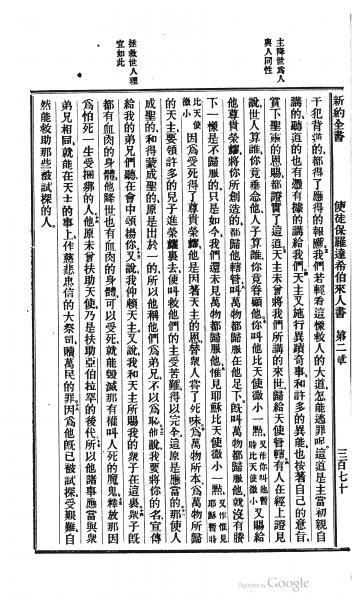 新約全書 使徒保羅達希伯來人書 第二章 三百七十
干犯背逆的、都得了應得的報應、我們若輕看這樣救人的大道、怎能逃罪呢、這道是主當初親自
講的、聽道的也有憑有據的講給我們、天主又施行異蹟奇事和許多的異能、也按著自己的意旨、
賞下聖靈的恩賜、都證實了這道、天主未曾將我們所講的來世、歸給天使管轄、有人在經上證見
說、世人算誰、你竟垂念他、人子算誰、你竟眷顧他、你叫他比天使微小一點、又作你叫他暫時比天使微小 又賜給
他尊貴榮耀、將你所創造的、都歸他轄管、叫萬物都歸服在他足下、既叫萬物都歸服他、就沒有賸
下一樣是不歸服的、只是如今、我們還未見萬物都歸服他、惟見耶穌比天使微小一點、又作惟見耶穌暫時
比天使微小 因爲受死得了尊貴榮耀、他是因著天主的恩、替衆人嘗了死味、爲萬物所歸
的天主、要領許多的兒子進榮耀裏去、便叫救他們的主受苦難得以完全、這原是應當的、那使人
成聖的、和得蒙成聖的、原是出於一的、所以他稱他們爲弟兄、不以爲恥、他說、我要將你的名宣傳
給我的弟兄們聽、在會中頌揚你、又說、我仰賴天主、又說、我和天主所賜我的衆子在這裏、衆子旣
都有血肉的身體、他降世也有血肉的身體、可以受死、就能毀滅那有權叫人死的魔鬼、釋放那因
爲怕死一生受捆綁的人、他原未曾扶助天使、乃是扶助亞伯拉罕的後代、所以他諸事應當與衆
弟兄相同、就能在天主的事上、作慈悲忠信的大祭司、贖萬民的罪、因爲他旣已被試探受艱難、自
然能救助那些被試探的人、
主降世爲人
與人同性
拯救世人理
宜如此
Digitized by Google